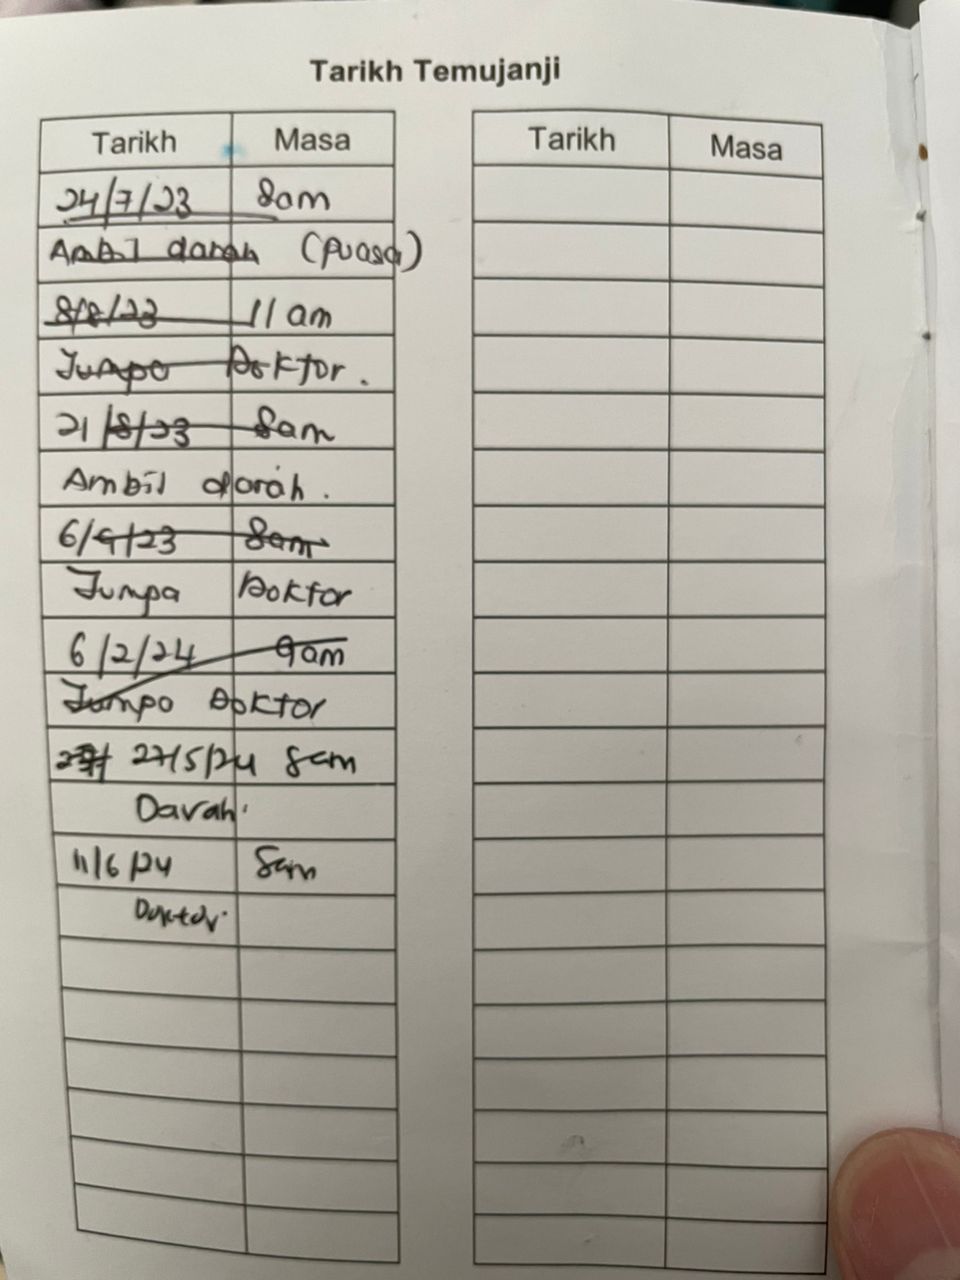 Tarikh Temujanji
Tarikh Masa
24/7/23 8am
Ambil darah (puasa)
8/8/23 11 am
Jumpa Doktor.
21/8/23 8am
Ambil darah.
6/9/23 8am
Jumpa Doktor
6/2/24 9am
Jumpa Doktor
27/5/24 8am
Darah.
11/6/24 8am
Doktor.
Tarikh Masa